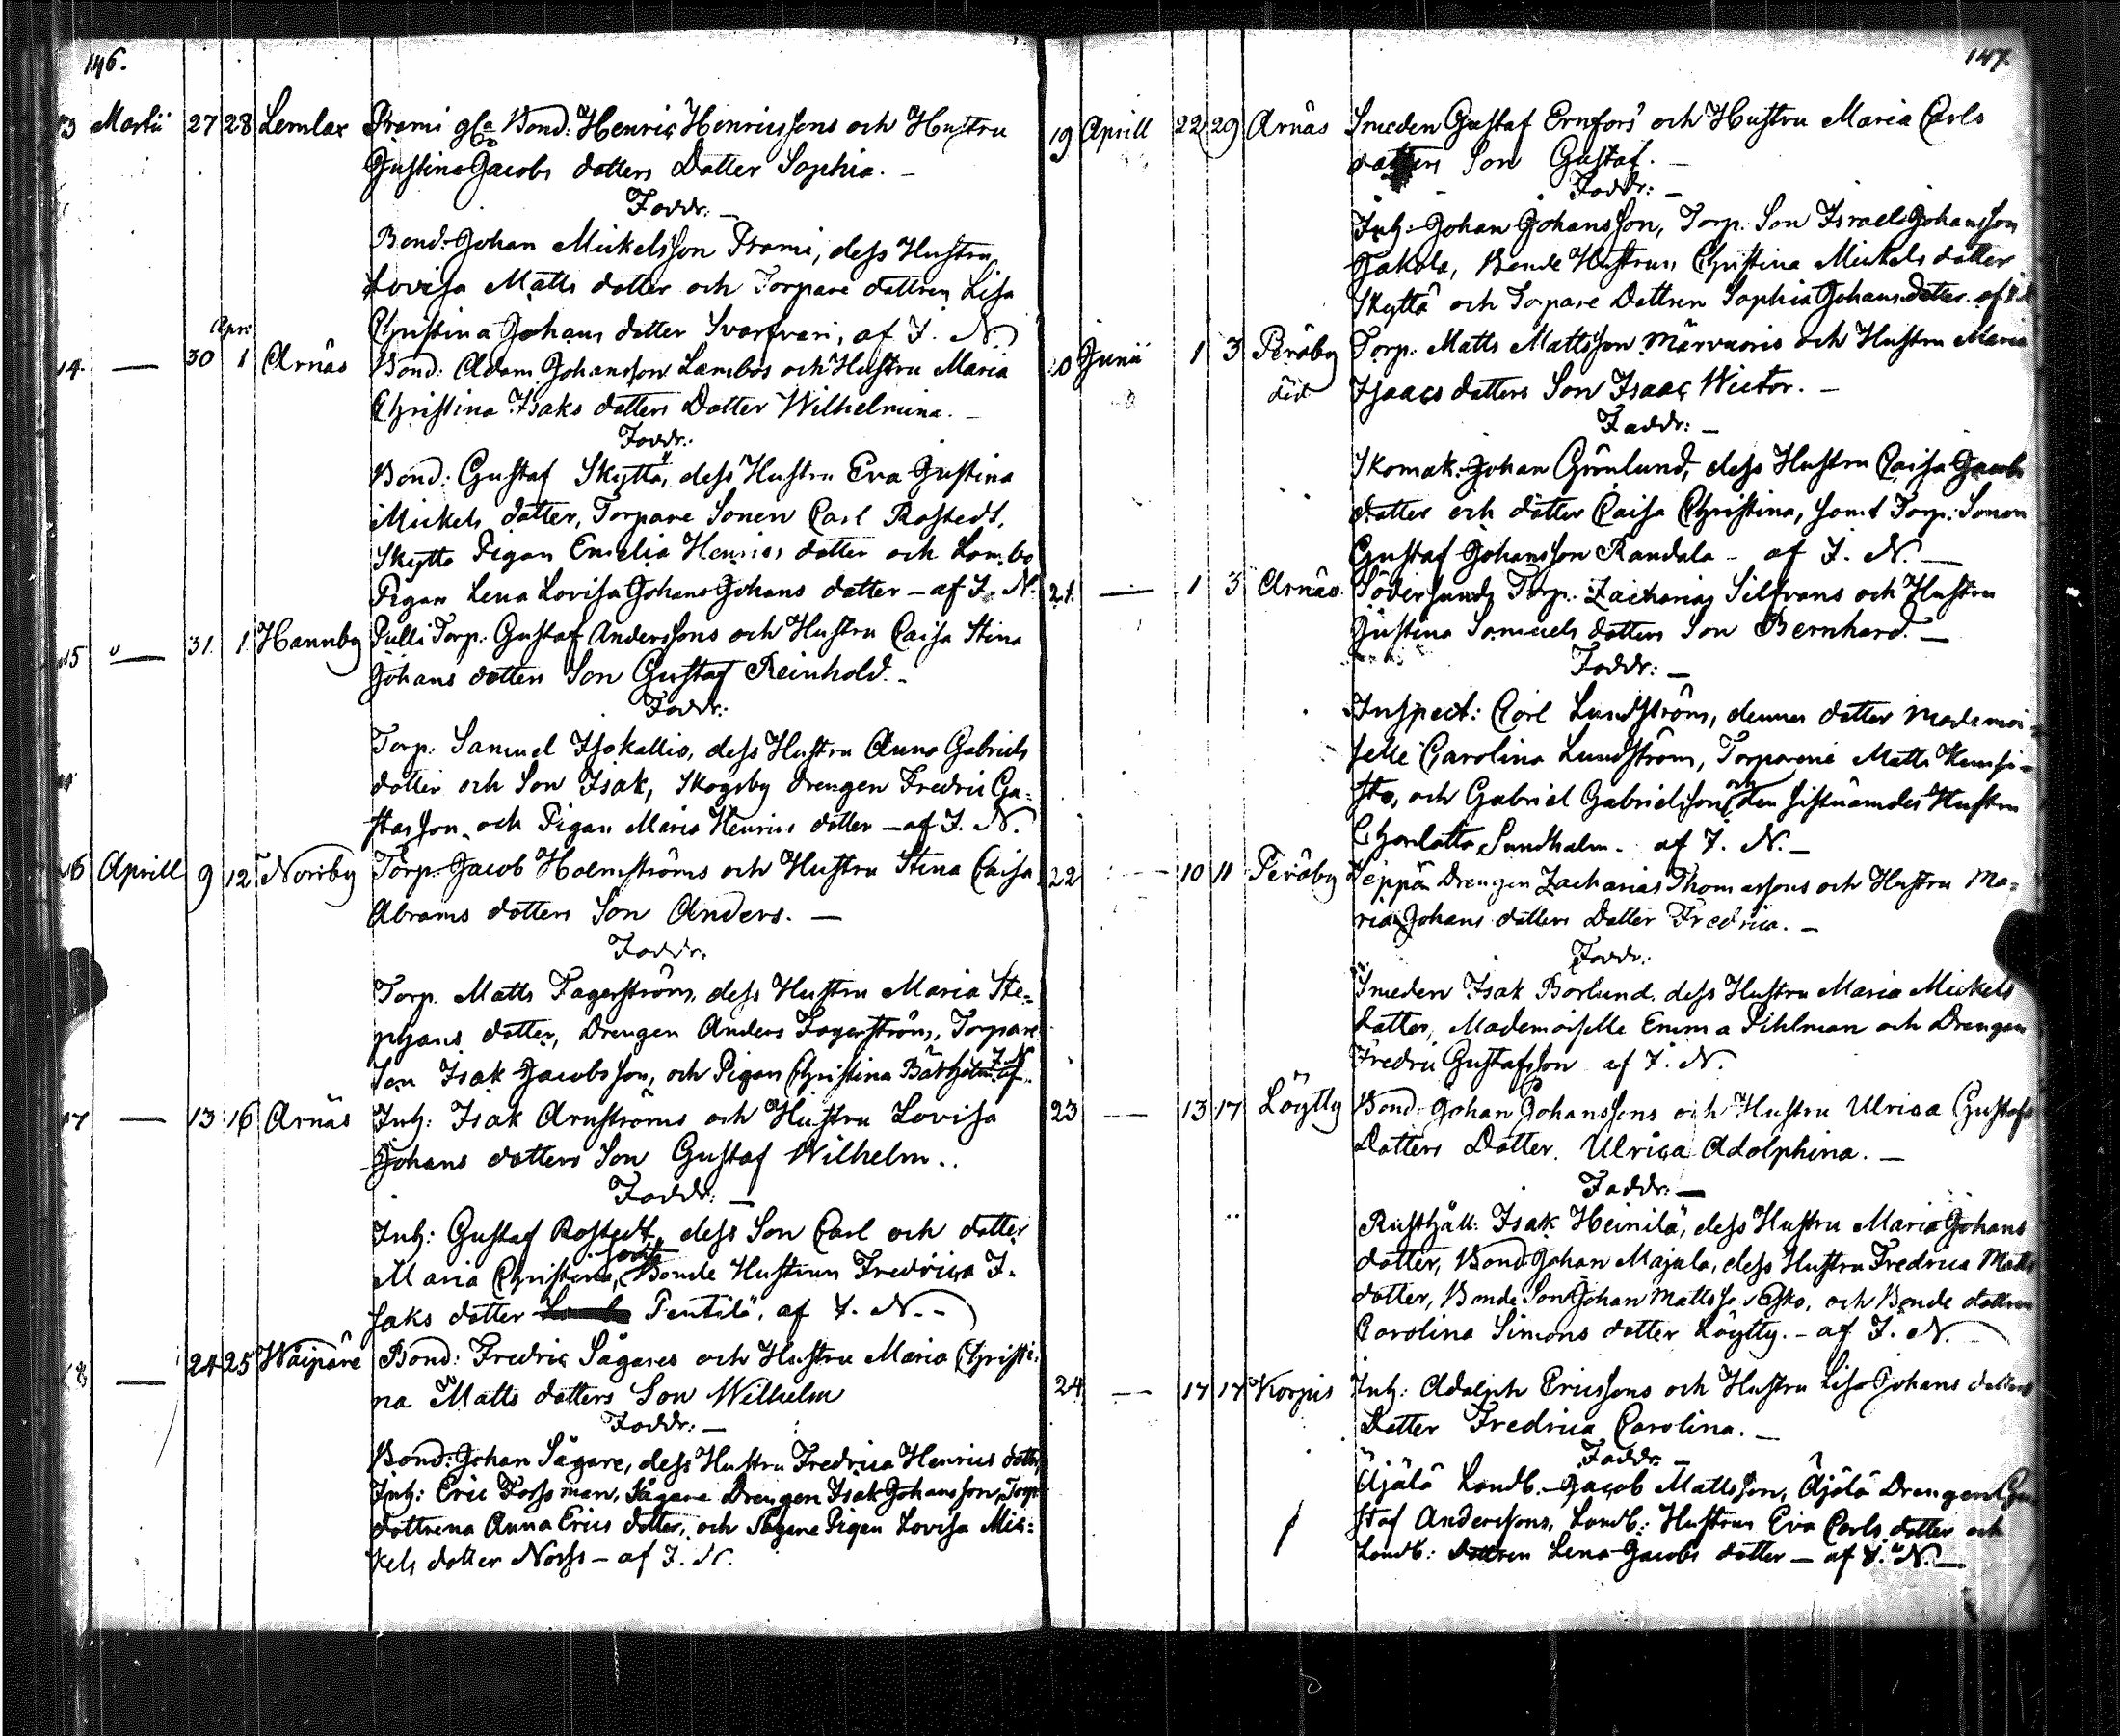 146.
13 Martii 27 28 Lemlax Prami gla Bond: Henric Henricssons och Hustru
Justina Jacobs dotters Dotter Sophia. –
Faddr: –
Bond: Johan Mickelsson Prami, dess Hustru
Lovisa Matts dotter och Torpare dottren Lisa
Christina Johans dotter Svarfvari, af J. N.
14. — 30 Apr: 1 Arnäs Bond: Adam Johansson Lambos och Hustru Maria
Christina Isaks dotters Dotter Wilhelmina. –
Faddr:
Bond: Gustaf Skyttä, dess Hustru Eva Justina
Mickels dotter, Torpare Sonen Carl Rostedt,
Skyttä Pigan Emelia Henrics dotter och Lambo
Pigan Lena Lovisa Johans Johans dotter – af J. N.
15 — 31. 1. Hannby Pulli Torp: Gustaf Anderssons och Hustru Caisa Stina
Johans dotters Son Gustaf Reinhold. –
Faddr:
Torp: Samuel Isokallio, dess Hustru Anna Gabriels
dotter och Son Isak, Skogsby drengen Fredric Gu=
stafsson, och Pigan Maria Henrics dotter – af J. N.
16 Aprill 9 12 Norrby Torp: Jacob Holmströms och Hustru Stina Caisa
Abrams dotters Son Anders. —
Faddr:
Torp. Matts Fagerström, dess Hustru Maria Ste=
phans dotter, Drengen Anders Fagerström, Torpare
Son Isak Jacobsson, och Pigan Christina Båkholm af J. N.
17 — 13 16 Arnäs Inh: Isak Arnströms och Hustru Lovisa
Johans dotters Son Gustaf Wilhelm..
Faddr: —
Inh: Gustaf Rostedt, dess Son Carl och dotter
Maria Christina, samt Bonde Hustrun Fredrica I=
saks dotter Pentilä, af J. N. –
18 — 24 25 Waipäre Bond: Fredric Sågares och Hustru Maria Christi=
na Matts dotters Son Wilhelm
Faddr: —
Bond: Johan Sågare, dess Hustru Fredrica Henrics dotter,
Inh: Eric Forssman, Sågare Drengen Isak Johansson, Torp:
dottrena Anna Erics dotter, och Sågare Pigan Lovisa Mic=
kels dotter Norss – af J. N.
147.
19 Aprill 22 29 Arnäs Smeden Gustaf Ernfors' och Hustru Maria Carls
dotters Son Gustaf. –
Faddr: –
Inh: Johan Johansson, Torp: Son Israel Johansson
Jakola, Bonde Hustrun Christina Mickels dotter
Skyttä och Torpare Dottren Sophia Johans dotter. af J. N
20 Junii 1 3 Peräby Torp: Matts Mattsson Märvuoris och Hustru Maria
Isaacs dotters Son Isaac Wictor. –
Faddr: –
Skomak: Johan Grönlund, dess Hustru Caisa Jacobs
dotter och dotter Caisa Christina, samt Torp: Sonen
Gustaf Johansson Randala – af J. N. —
21. — 1 3 Arnäs. Södersunds Torp: Zacharias Silfvans och Hustru
Justina Samuels dotters Son Bernhard. —
Faddr: —
Inspect: Carl Lundström, dennes dotter Mademoi=
selle Carolina Lundström, Torparene Matts Kunsi=
sto, och Gabriel Gabrielsson, och den sistnämdes Hustru
Charlotta Sundholm. af J. N. —
22 — 10 11 Peräby Seppä Drengen Zacharias Thomassons och Hustru Ma=
ria Johans dotters Dotter Fredrica. –
Faddr:
Smeden Isak Borlund, dess Hustru Maria Mickels
dotter, Mademoiselle Emma Pihlman och Drengen
Fredric Gustafsson af J. N.
23 — 13 17 Löytty Bond: Johan Johanssons och Hustru Ulrica Gustafs
Dotters Dotter. Ulrica Adolphina. –
Faddr: —
Rusthåll: Isak Heinilä, dess Hustru Maria Johans
dotter, Bond: Johan Majala, dess Hustru Fredrica Matts
dotter, Bonde Son Johan Mattss. och Bonde dottren
Carolina Simons dotter Löytty. – af J. N.
24 — 17 17 Korpis Inh: Adolph Ericssons och Hustru Lisa Johans dotters
Dotter Fredrica Carolina. –
Faddr: –
Äjälä Landb. Jacob Mattsson, Äjälä Drengen Gu
staf Anderssons, Landb: Hustrun Eva Carls dotter och
Landb: dottren Lena Jacobs dotter – af J. N. —